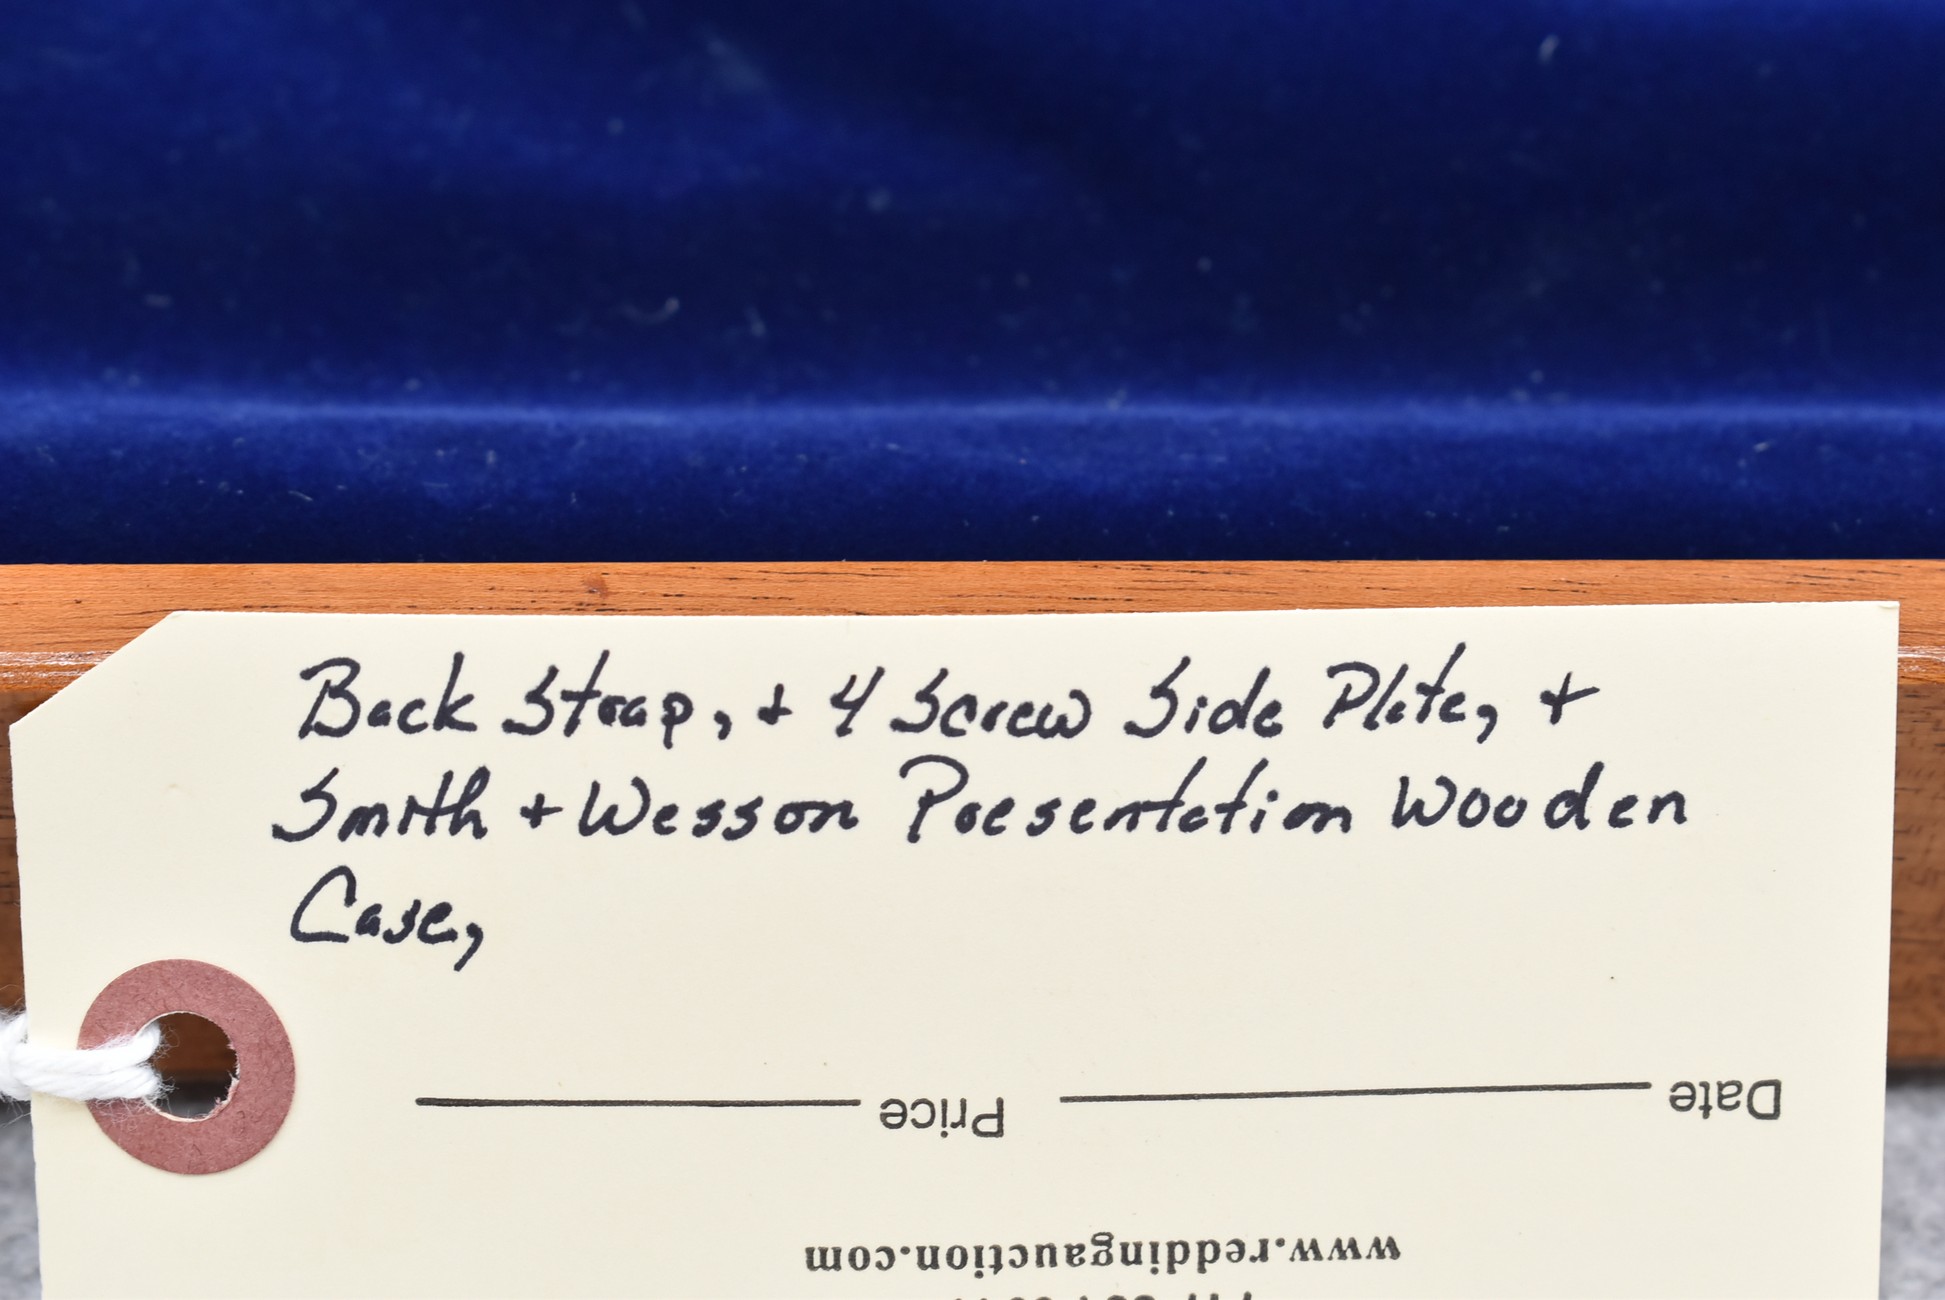 Back Strap, + 4 Screw Side Plate, +
Smith + Wesson Presentation Wooden
Case,
Price Date
www.reddingauction.com